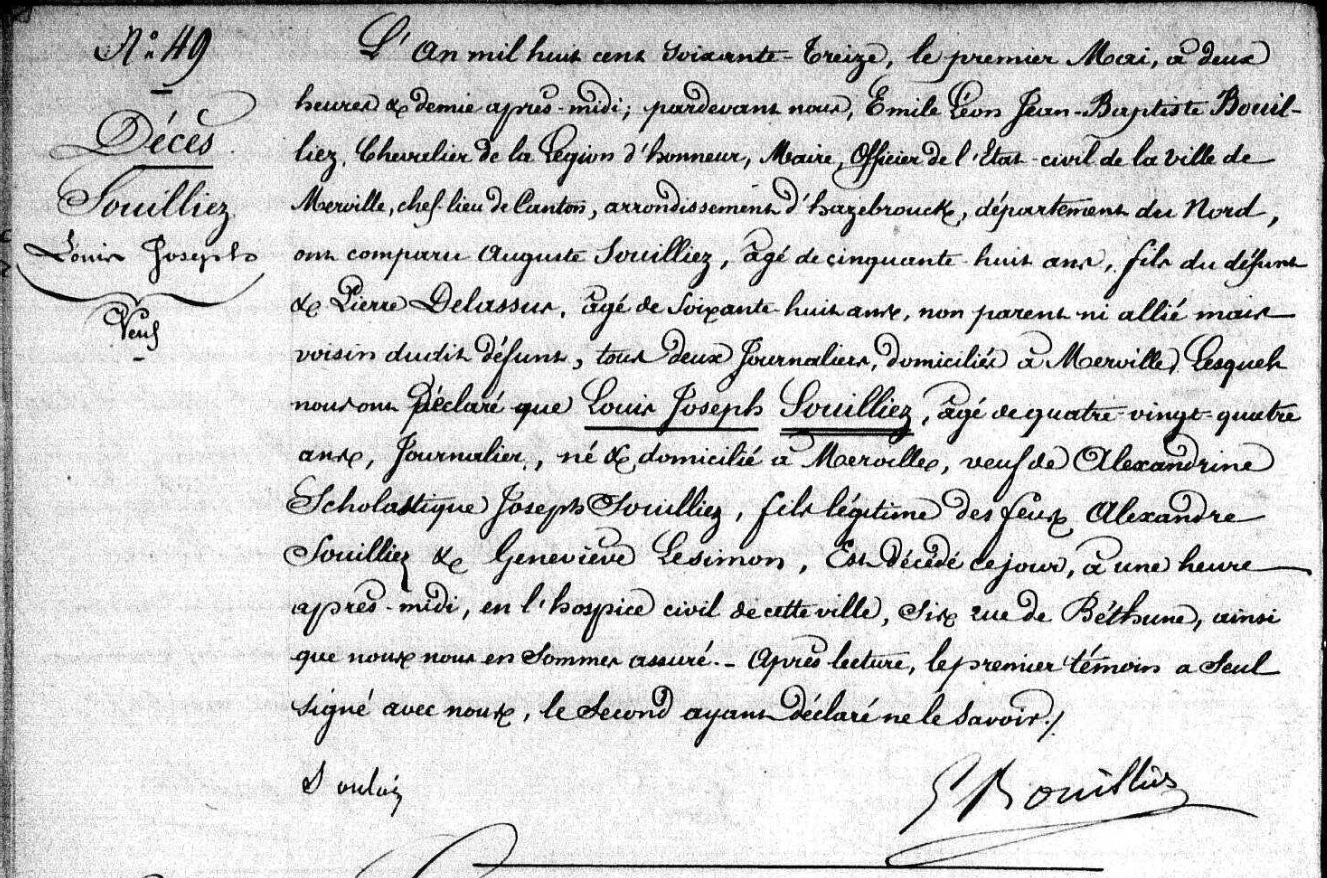 N° 49
Décès
Souilliez
Louis Joseph
Veuf
L'An mil huit cent soixante-treize, le premier Mai, à deux
heures & demie après-midi; pardevant nous, Emile Léon Jean-Baptiste Bouil-
liez, Chevalier de la Légion d'honneur, Maire, Officier de l'Etat-civil de la ville de
Merville, chef-lieu de Canton, arrondissement d'hazebrouck, département du Nord,
ont comparu Auguste Souilliez, âgé de cinquante-huit ans, fils du défunt
& Pierre Delassus, âgé de soixante-huit ans, non parent ni allié mais
voisin dudit défunt, tous deux Journaliers, domiciliés à Merville, Lesquels
nous ont déclaré que Louis Joseph Souilliez, âgé de quatre-vingt-quatre
ans, Journalier, né & domicilié à Merville, veuf de Alexandrine
Scholastique Joseph Souilliez, fils légitime des feux Alexandre
Souilliez & Geneviève Lesimon, Est décédé ce jour, à une heure
après-midi, en l'hospice civil de cette ville, sis rue de Béthune, ainsi
que nous nous en sommes assuré.- Après lecture, le premier témoin a seul
signé avec nous, le second ayant déclaré ne le savoir./
E Bouilliez